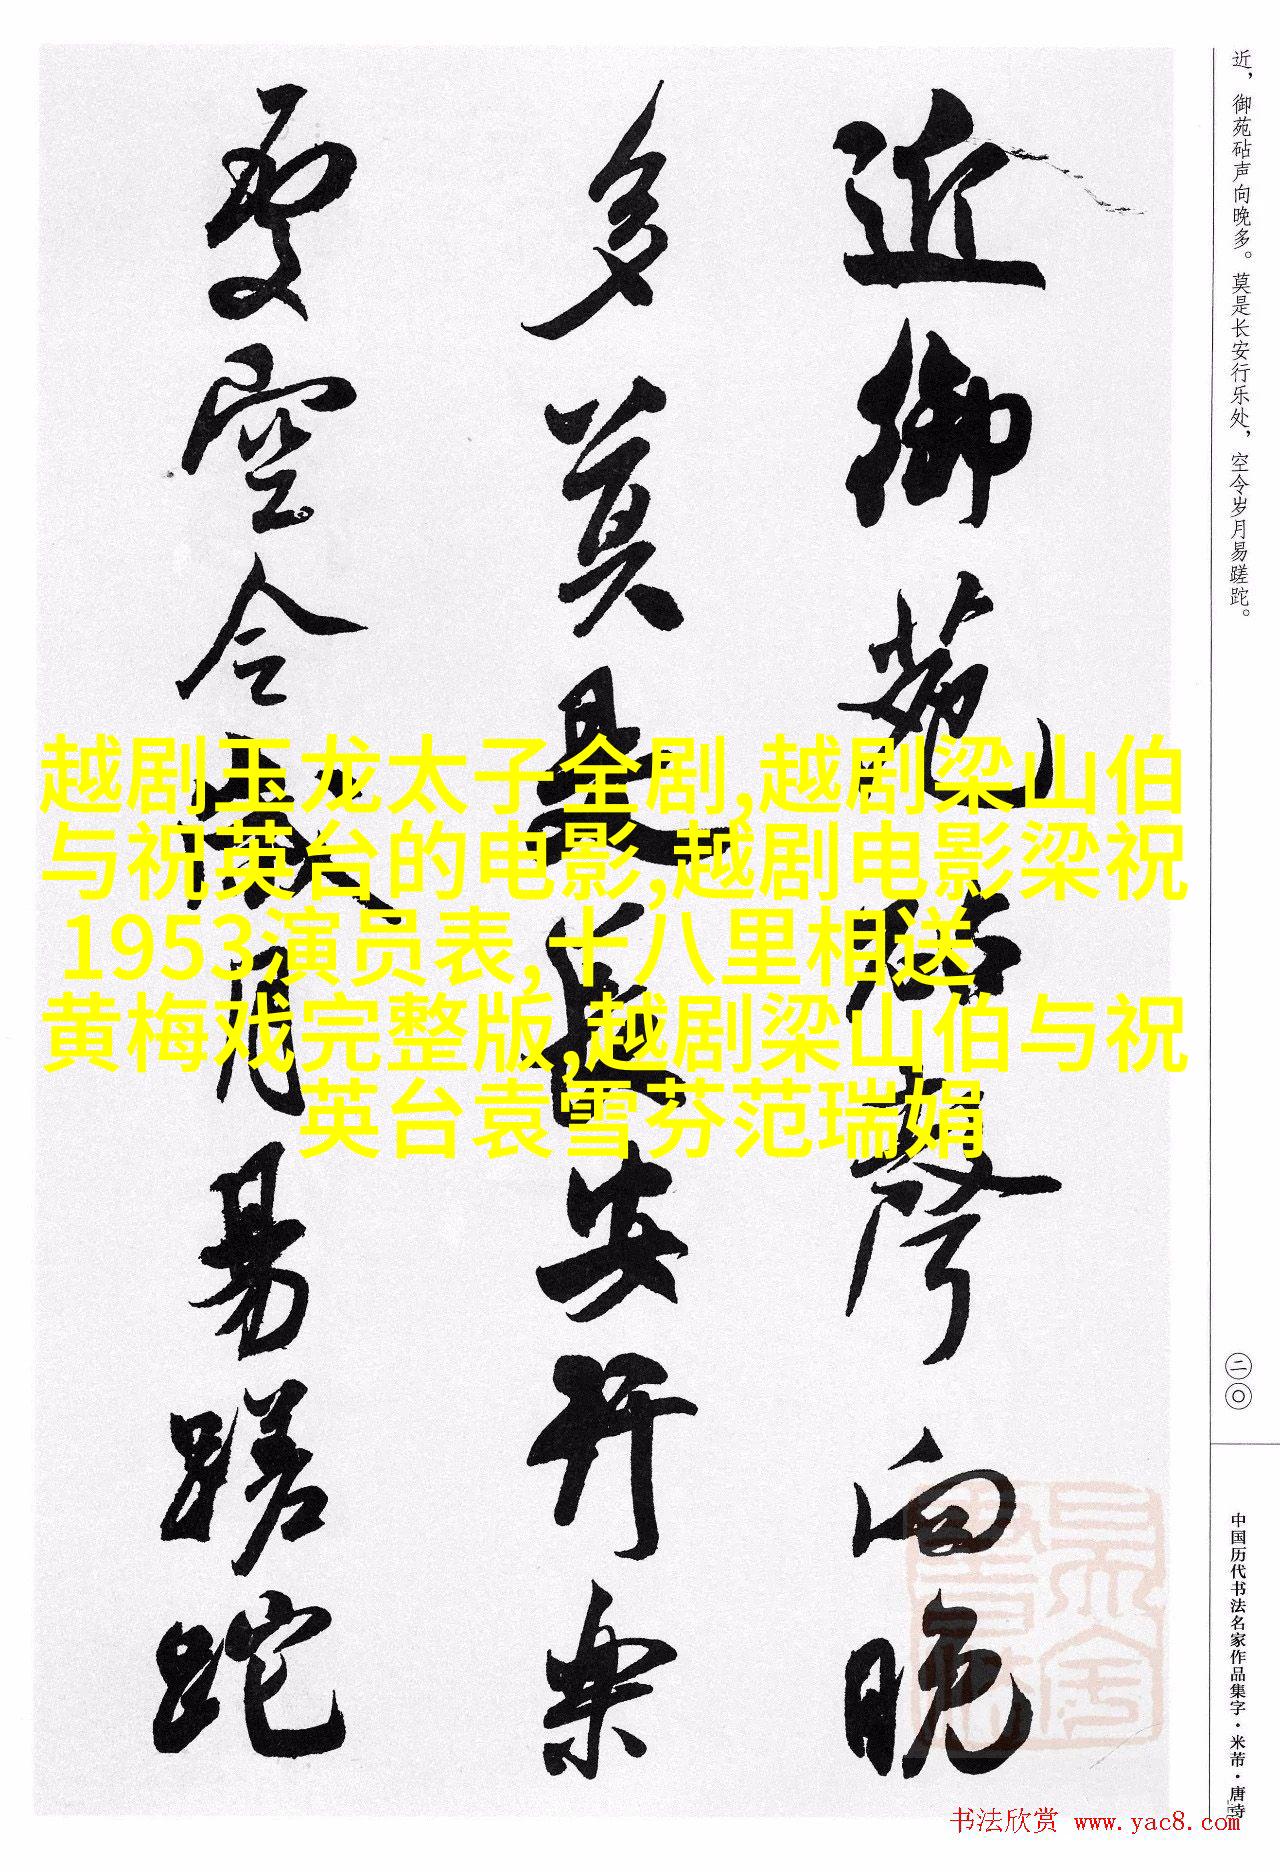 近，御苑砧声向晚多。莫是长安行乐处，空令岁月易蹉跎。
近御苑砧聲向晚
多莫是長安行樂
處空令歲月易蹉跎
越剧玉龙太子全剧,越剧梁山伯
与祝英台的电影,越剧电影梁祝
1953演员表,十八里相送
黄梅戏完整版,越剧梁山伯与祝
英台袁雪芬范瑞娟
二〇
中国历代书法名家作品集字·米芾·唐诗
书法欣赏 www.yac8.com